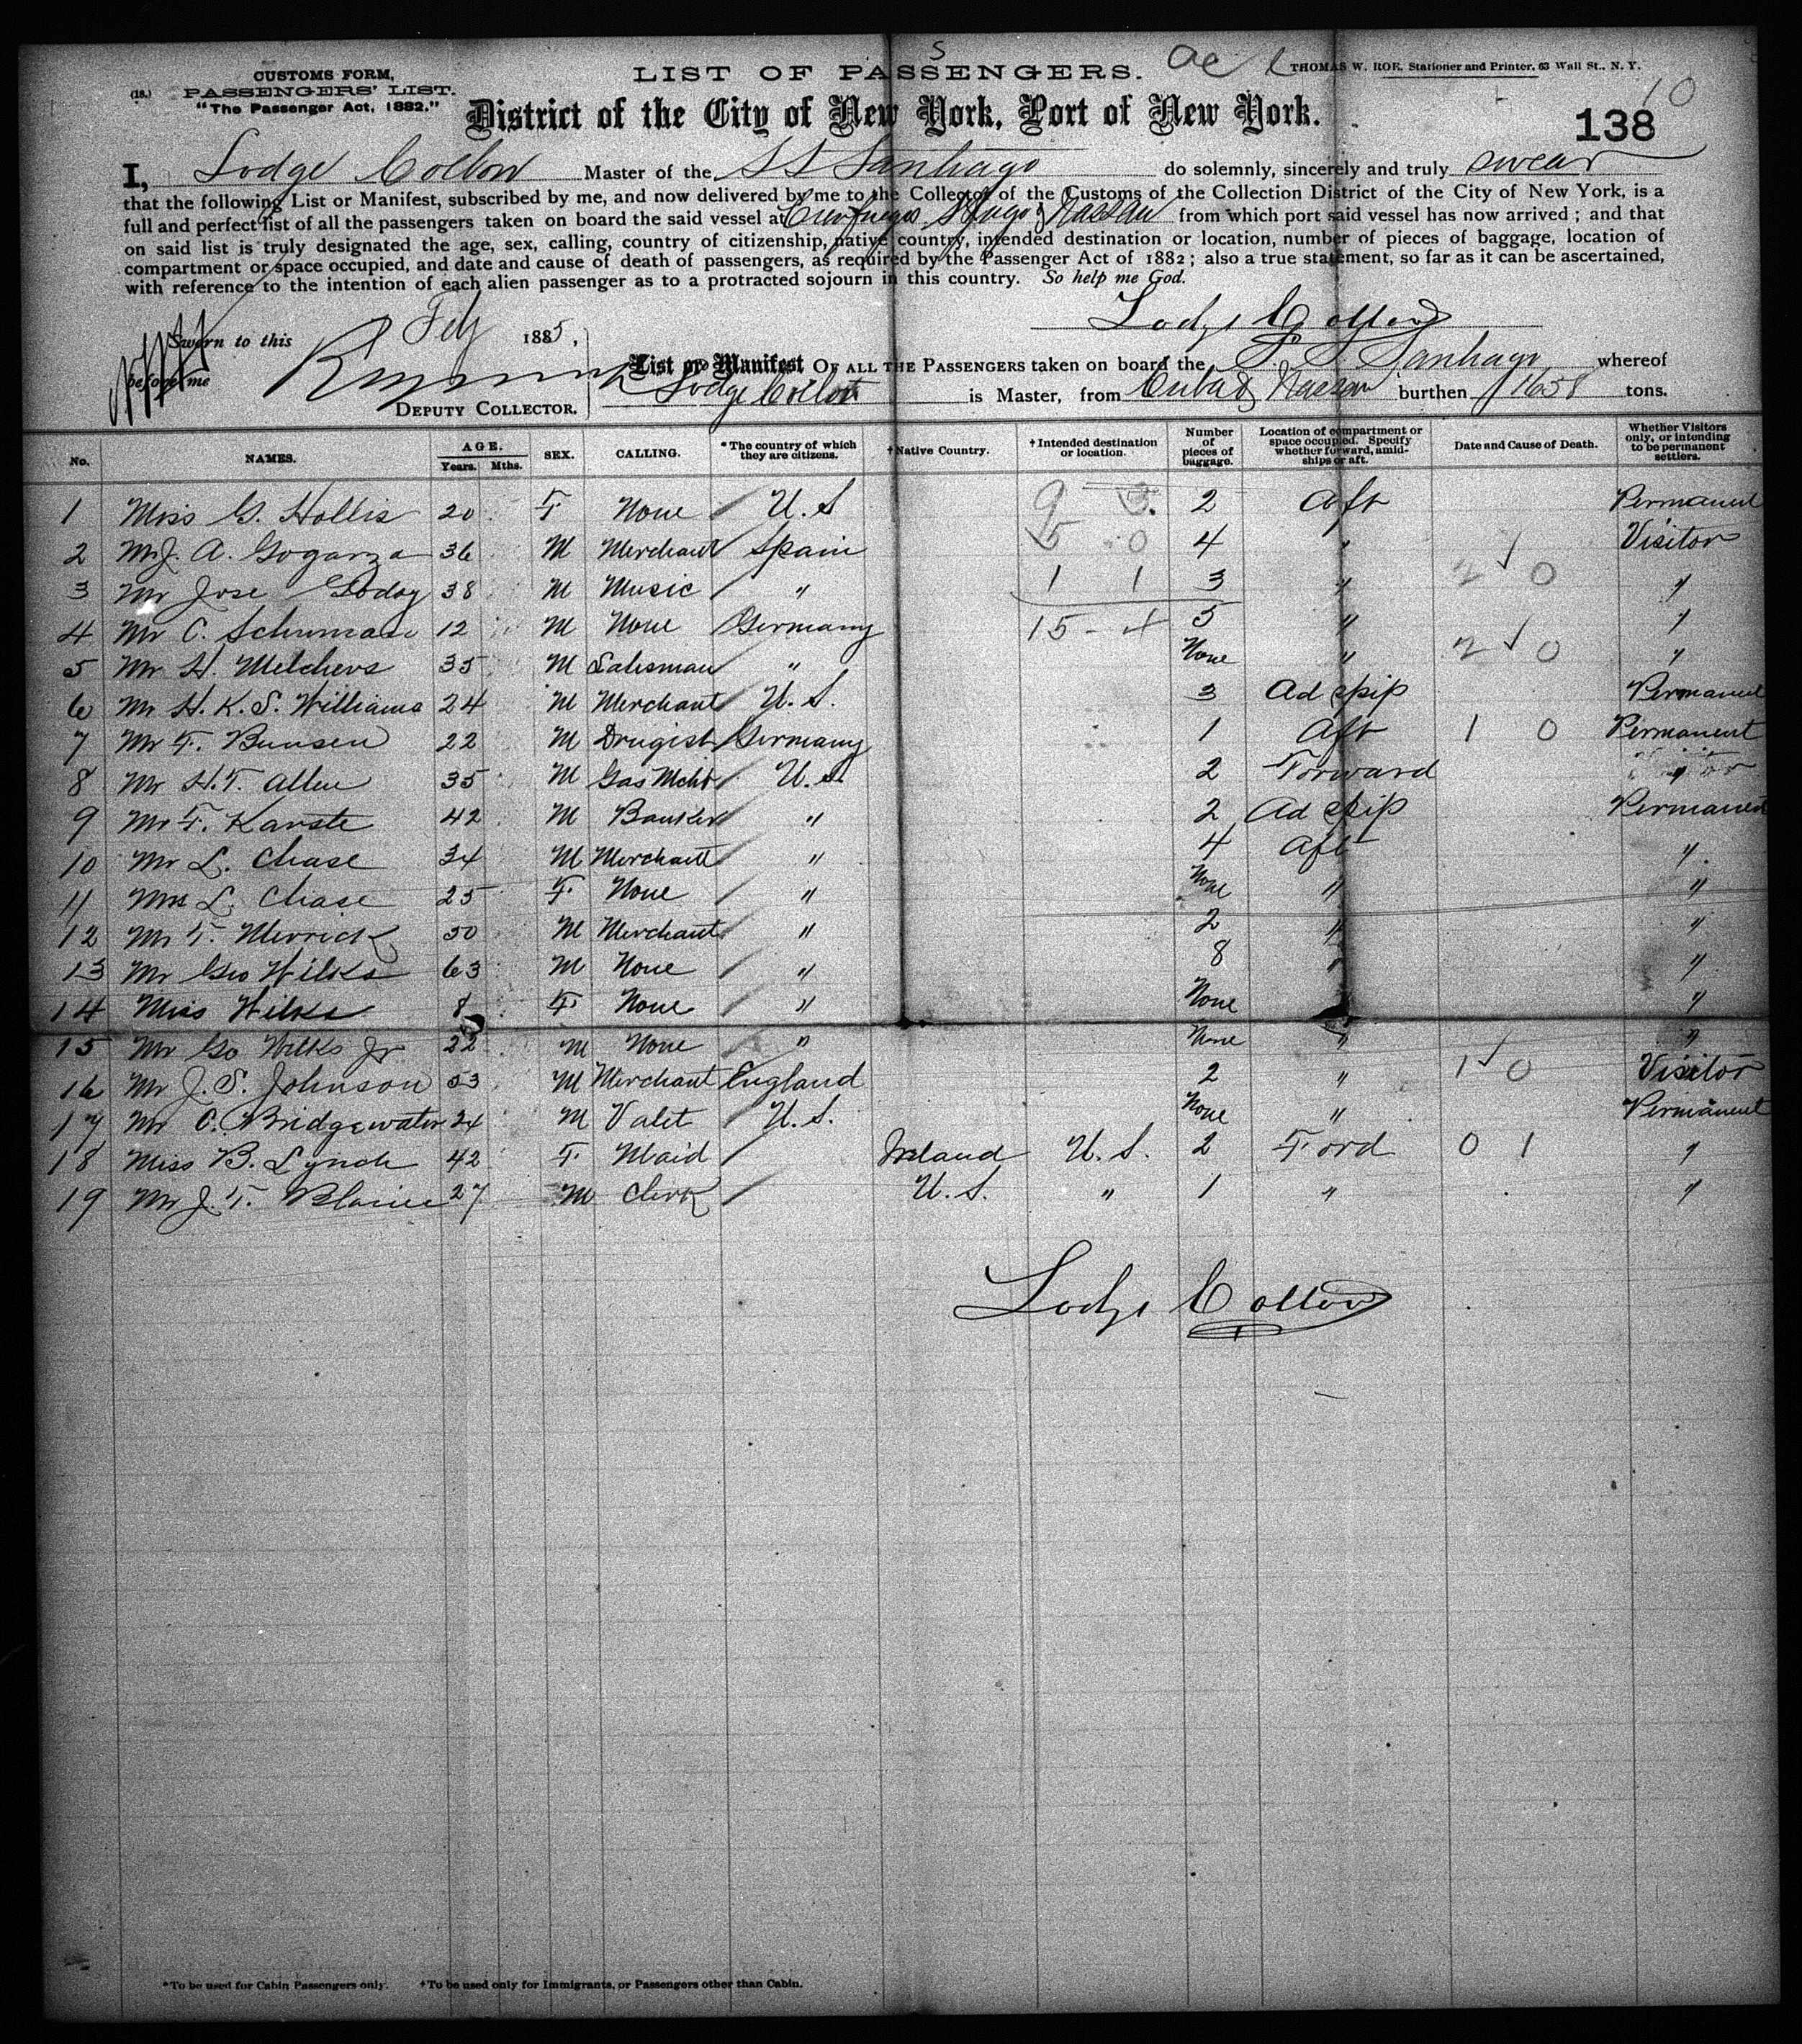 CUSTOMS FORM,
(18.) PASSENGERS' LIST.
"The Passenger Act, 1882."
LIST OF PASSENGERS.
THOMAS W. ROE, Stationer and Printer, 63 Wall St., N. Y.
10
District of the City of New York, Port of New York.
138
I, Lodge Colton Master of the SS Santiago do solemnly, sincerely and truly swear
that the following List or Manifest, subscribed by me, and now delivered by me to the Collector of the Customs of the Collection District of the City of New York, is a
full and perfect list of all the passengers taken on board the said vessel at Cienfuegos Stiago & Nassau from which port said vessel has now arrived; and that
on said list is truly designated the age, sex, calling, country of citizenship, native country, intended destination or location, number of pieces of baggage, location of
compartment or space occupied, and date and cause of death of passengers, as required by the Passenger Act of 1882; also a true statement, so far as it can be ascertained,
with reference to the intention of each alien passenger as to a protracted sojourn in this country. So help me God.
Lodge Colton
Sworn to this Feby 1885,
before me
DEPUTY COLLECTOR.
List or Manifest OF ALL THE PASSENGERS taken on board the S. S. Santiago whereof
Lodge Colton is Master, from Cuba & Nassau burthen 1638 tons.
No. NAMES. AGE. Years. Mths. SEX. CALLING. *The country of which they are citizens. †Native Country. †Intended destination or location. Number of pieces of baggage. Location of compartment or space occupied. Specify whether forward, amidships or aft. Date and Cause of Death. Whether Visitors only, or intending to be permanent settlers.
1 Miss G. Hollis 20 F None U.S 9 3. 2 Aft Permanent
2 Mr J. A. Gogarza 36 M Merchant Spain 5 0 4 " Visitor
3 Mr Jose Godoy 38 M Music " 1 1 3 " 2 0 "
4 Mr C. Schumase 12 M None Germany 15 - 4 5 " "
5 Mr H. Melchers 35 M Salesman " None " 2 0 "
6 Mr H. K. S. Williams 24 M Merchant U.S. 3 Ad ship Permanent
7 Mr F. Bunsen 22 M Drugist Germany 1 Aft 1 0 Permanent
8 Mr H. F. Allen 35 M Gas Mcht U.S. 2 Forward "
9 Mr F. Karste 42 M Banker " 2 Ad ship Permanent
10 Mr L. Chase 34 M Merchant " 4 Aft "
11 Mrs L. Chase 25 F None " None " "
12 Mr F. Merrick 50 M Merchant " 2 " "
13 Mr Geo Wilks 63 M None " 8 " "
14 Miss Wilks 8 F None " None " "
15 Mr Go Wilks Jr 22 M None " None " "
16 Mr J. S. Johnson 53 M Merchant England 2 " 1 0 Visitor
17 Mr C. Bridgewater 24 M Valet U.S. None " Permanent
18 Miss B. Lynch 42 F Maid Ireland U.S. 2 Ford 0 1 "
19 Mr J. F. Blaine 27 M Clerk U.S. " 1 " "
Lodge Colton
*To be used for Cabin Passengers only. †To be used only for Immigrants, or Passengers other than Cabin.